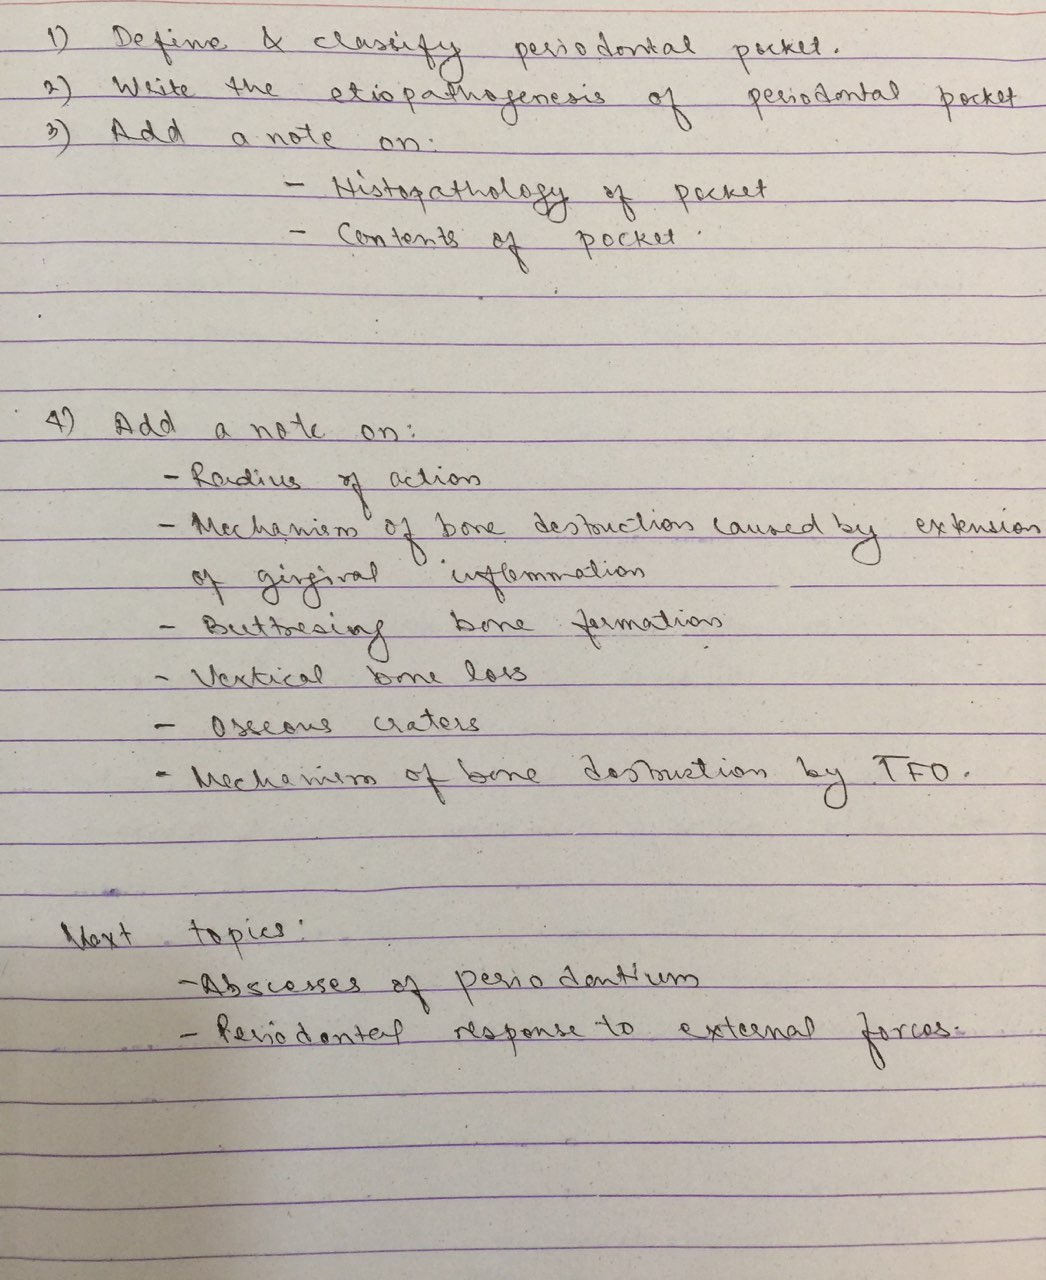 1) Define & classify periodontal pocket.
2) Write the etiopathogenesis of periodontal pocket
3) Add a note on:
- Histopathology of pocket
- Contents of pocket.
4) Add a note on:
- Radius of action
- Mechanism of bone destruction caused by extension
of gingival inflammation
- Buttresing bone formation
- Vertical bone loss
- Osseous craters
- Mechanism of bone destruction by TFO.
Next topics:
- Abscesses of periodontium
- Periodontal response to external forces.